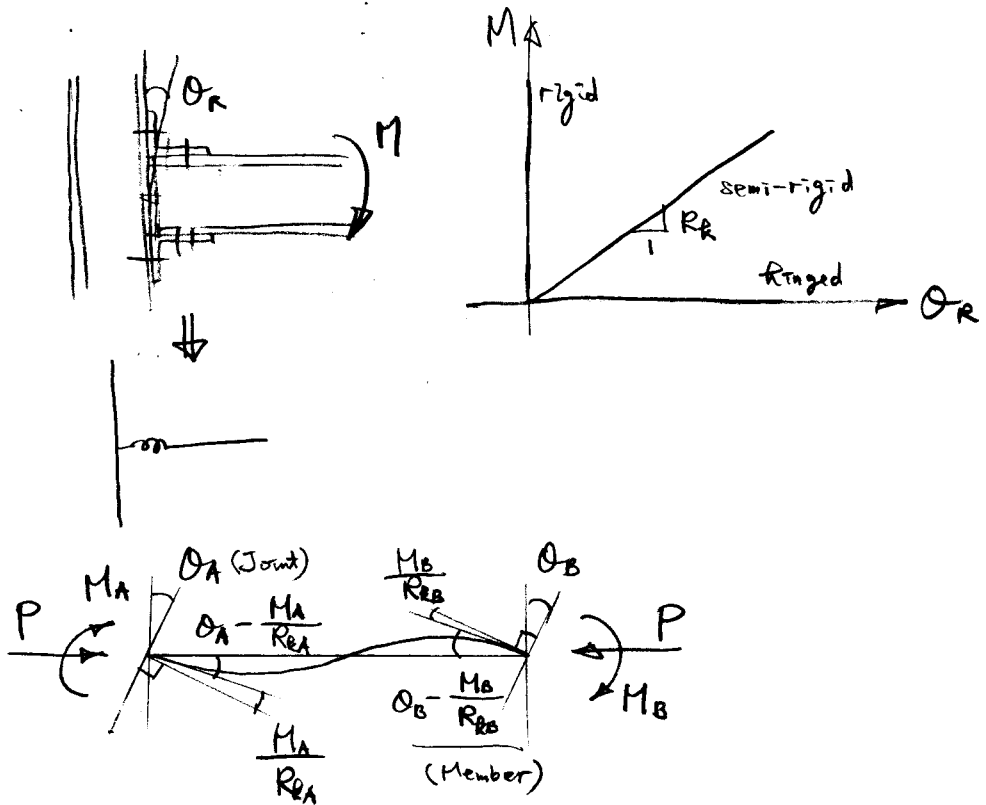 θ_R
M
M
rigid
semi-rigid
R_k
1
hinged
θ_R
θ_A (Joint)
M_A
P
θ_A - M_A/R_kA
M_A/R_kA
M_B/R_kB
θ_B
P
M_B
θ_B - M_B/R_kB
(Member)